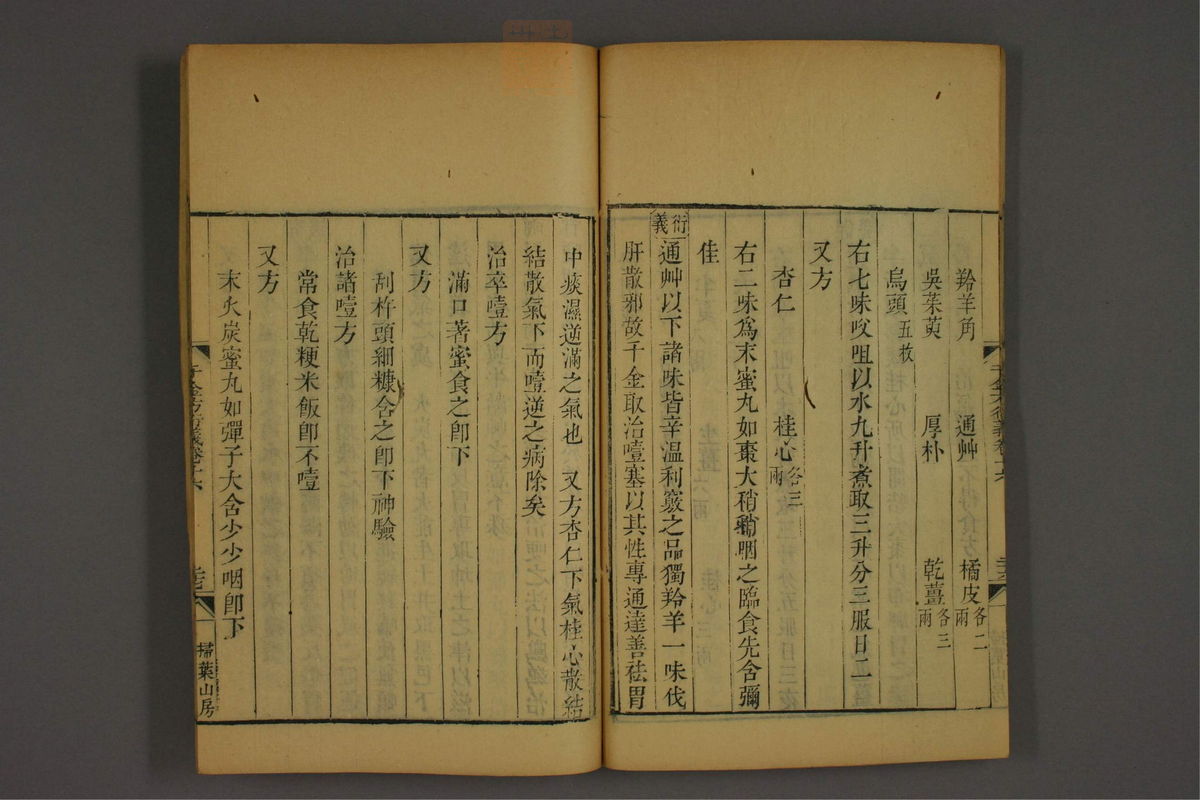 羚羊角　通艸　橘皮各二兩
吳茱萸　厚朴　乾薑各三兩
烏頭五枚
右七味㕮咀以水九升煮取三升分三服日二
又方
杏仁　桂心各三兩
右二味爲末蜜丸如棗大稍稍咽之臨食先含彌
佳
衍義 通艸以下諸味皆辛温利竅之品獨羚羊一味伐
肝散邪故千金取治噎塞以其性專通達善祛胃
中痰濕逆滿之氣也　又方杏仁下氣桂心散結
結散氣下而噎逆之病除矣
治卒噎方
滿口著蜜食之卽下
又方
刮杵頭細糠含之卽下神驗
治諸噎方
常食乾粳米飯卽不噎
又方
末火炭蜜丸如彈子大含少少咽卽下
千金方衍義卷十六
掃葉山房